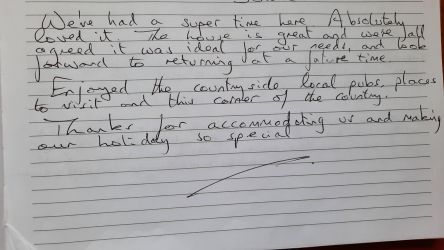 We've had a super time here. Absolutely
loved it. The house is great and we're all
agreed it was ideal for our needs, and look
forward to returning at a future time.
Enjoyed the countryside local pubs, places
to visit and this corner of the country.
Thanks for accommodating us and making
our holiday so special